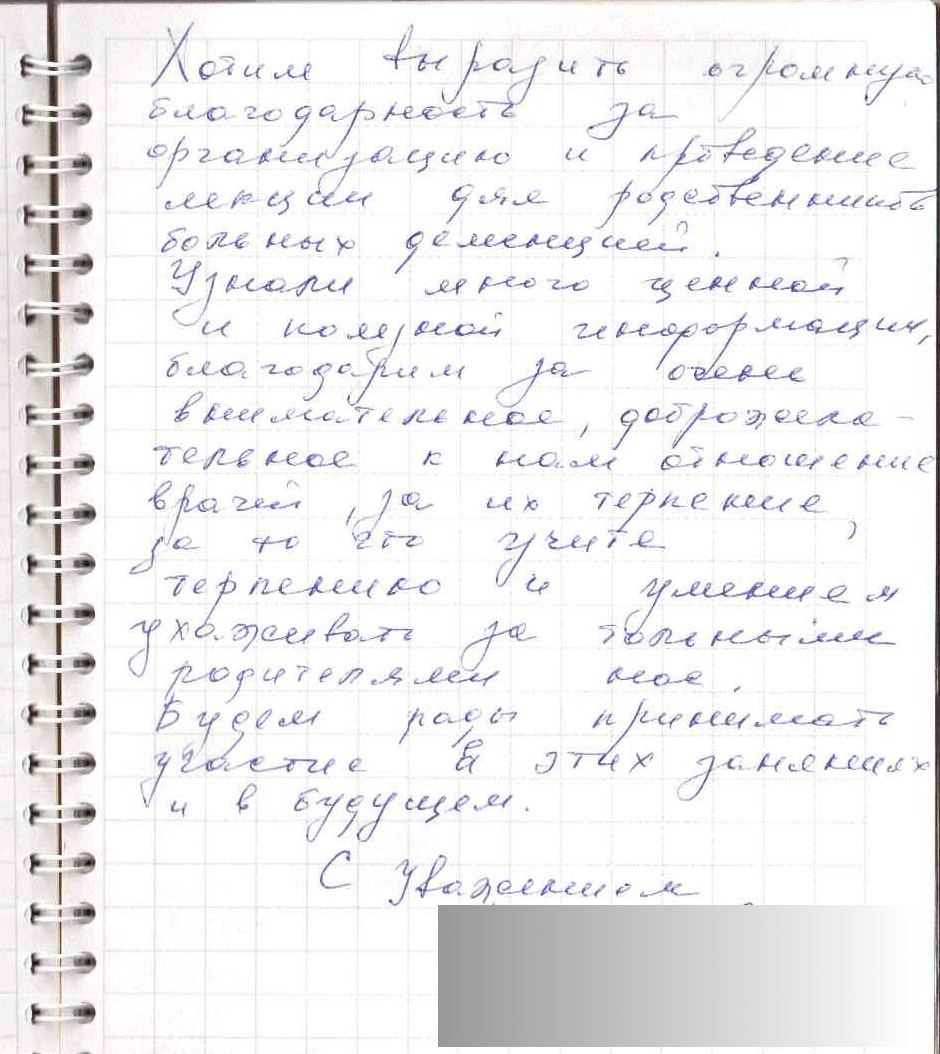 Хотим выразить огромную
благодарность за
организацию и проведение
лекции для родственников
больных деменцией.
Узнали много ценной
и полезной информации,
благодарим за очень
внимательное, доброжела-
тельное к нам отношение
врачей, за их терпение,
за то что учите
терпению и умением
ухаживать за больными
родителями нас.
Будем рады принимать
участие в этих занятиях
и в будущем.
С уважением